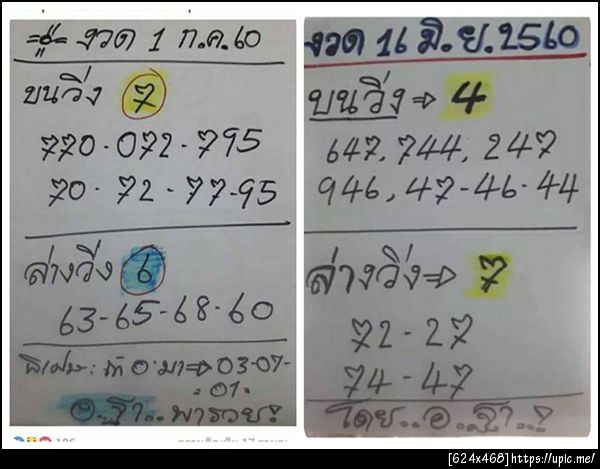 งวด 1 ก.ค.60
บนวิ่ง 7
770-072-795
70-72-77-95
ล่างวิ่ง 6
63-65-68-60
พิเศษ: ถ้า 0 มา⇒03-07
-01-
อ.ฐา..พารวย!
งวด 16 มิ.ย.2560
บนวิ่ง ⇒ 4
647, 744, 247
946, 47-46-44
ล่างวิ่ง⇒ 7
72-27
74-47
โดย..อ.ฐา..!
[624x468]https://upic.me/